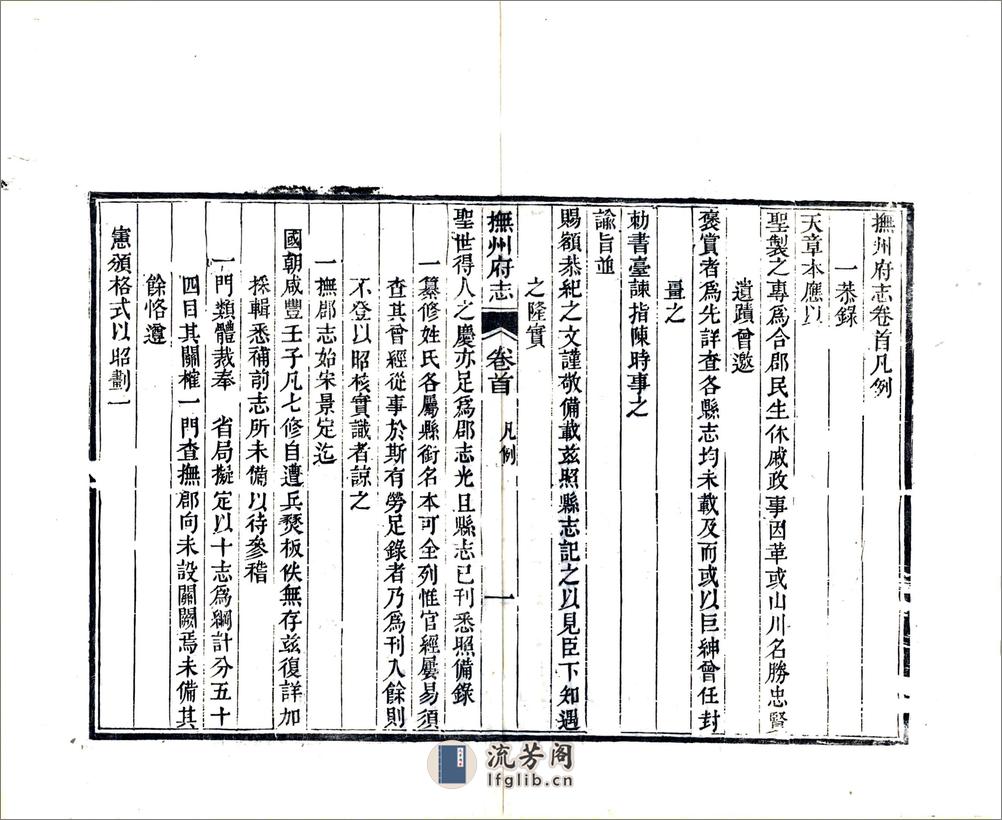 撫州府志卷首凡例
一恭錄
天章本應以
聖製之專爲合郡民生休戚政事因革或山川名勝忠賢
遺蹟曾邀
褒賞者爲先詳查各縣志均未載及而或以巨紳曾任封
畺之
勅書臺諫指陳時事之
諭旨並
賜額恭紀之文謹敬備載茲照縣志記之以見臣下知遇
之隆實
撫州府志 卷首 凡例 一
聖世得人之慶亦足爲郡志光且縣志已刊悉照備錄
一纂修姓氏各屬縣銜名本可全列惟官經屢易須
查其曾經從事於斯有勞足錄者乃爲刊入餘則
不登以昭核實識者諒之
一撫郡志始宋景定迄
國朝咸豐壬子凡七修自遭兵燹板佚無存茲復詳加
採輯悉補前志所未備以待參稽
一門類體裁奉 省局擬定以十志爲綱計分五十
四目其關榷一門查撫郡向未設關闕焉未備其
餘恪遵
憲頒格式以昭劃一
流芳阁
lfglib.cn